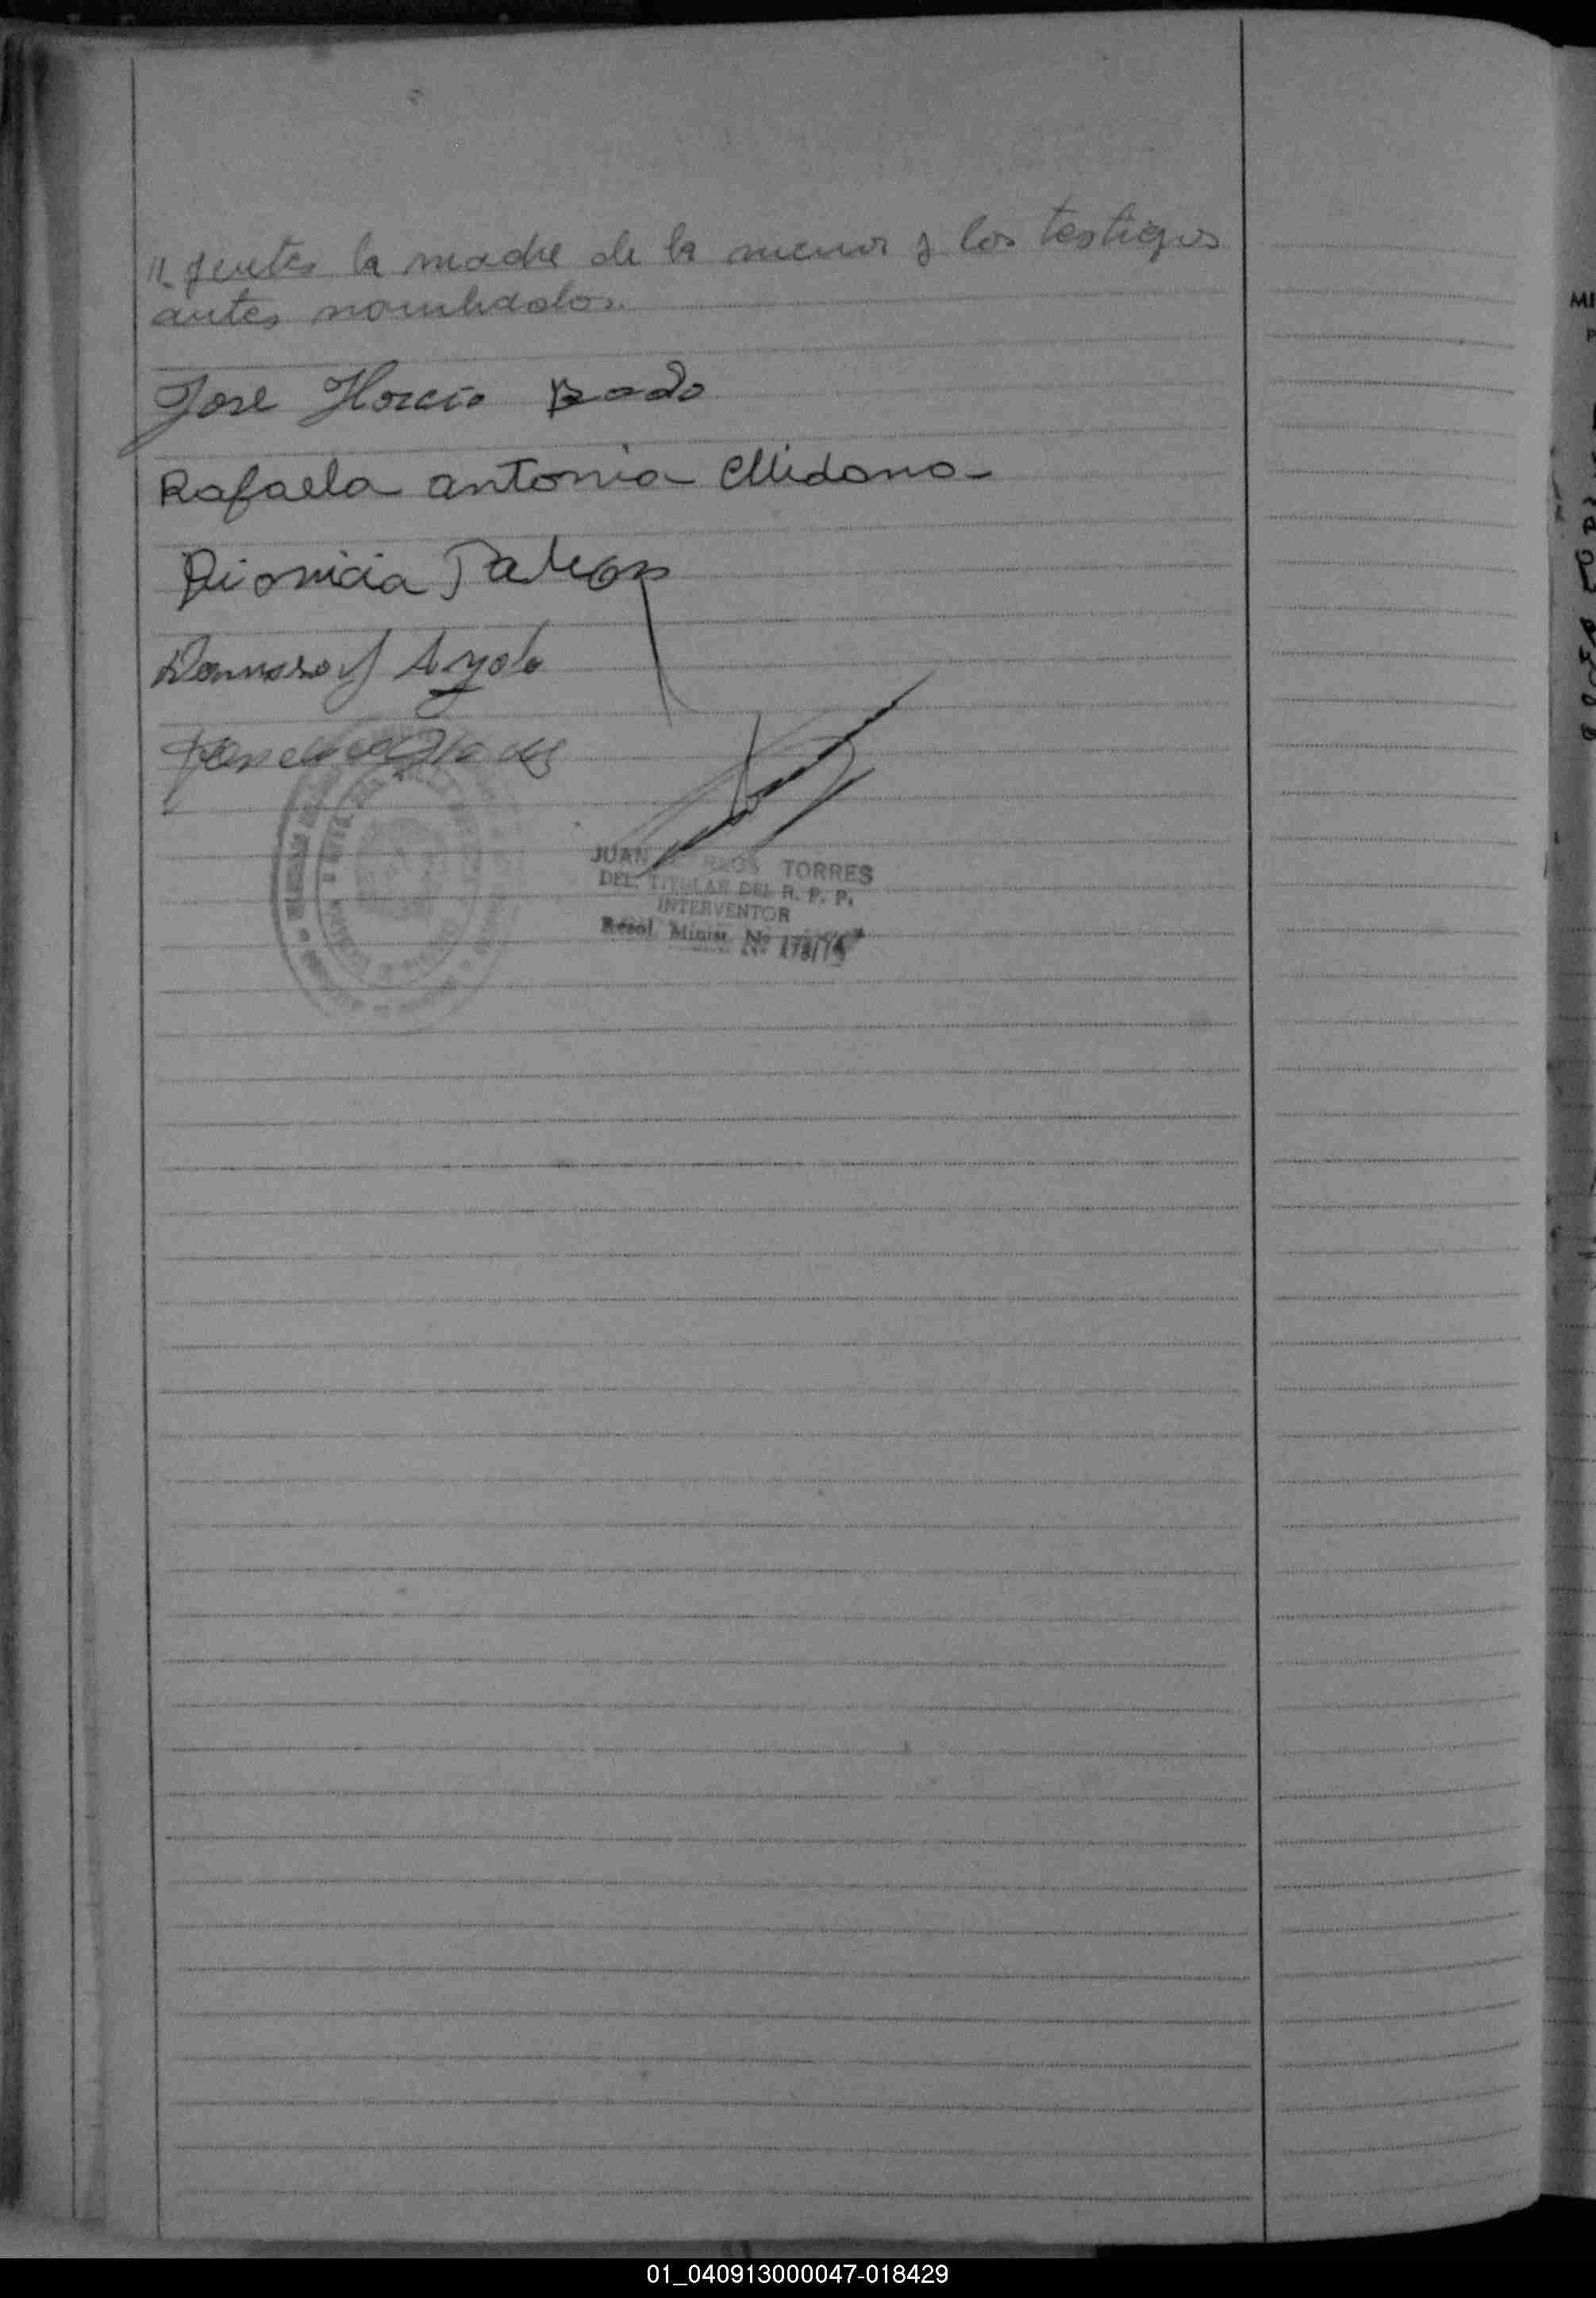 "gentes la madre de la menor y los testigos
antes nombrados.
Jose Horcio Bado
Rafaela antonia Midana
Dionicia
Ayala
JUAN CARLOS TORRES
DEL. TITULAR DEL R. P. P.
INTERVENTOR
Resol. Minist. Nº 178/75
MI
01_040913000047-018429